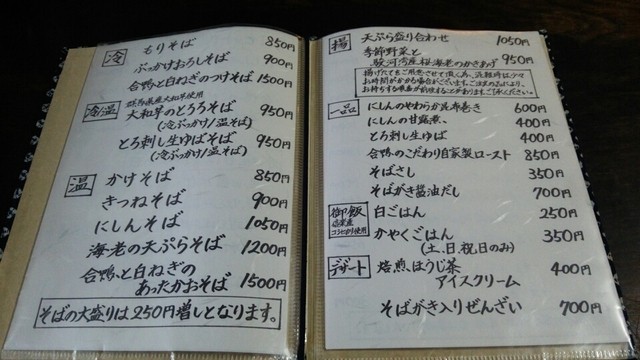 冷
もりそば 850円
ぶっかけおろしそば 900円
合鴨と白ねぎのつけそば 1500円
冷/温
群馬県産大和芋使用
大和芋のとろろそば 950円
(冷ぶっかけ/温そば)
とろ刺し生ゆばそば 950円
(冷ぶっかけ/温そば)
温
かけそば 850円
きつねそば 900円
にしんそば 1050円
海老の天ぷらそば 1200円
合鴨と白ねぎの
あったかおそば 1500円
そばの大盛りは250円増しとなります。
揚
天ぷら盛り合わせ 1050円
季節野菜と
駿河湾産桜海老のかきあげ 950円
揚げたてをご用意させて頂く為、混雑時は少々
お時間がかかる場合がございます。ご注文のさいより、
お待ちする順番が前後することがあります。ご了承ください。
一品
にしんのやわらか昆布巻き 600円
にしんの甘露煮、 400円
とろ刺し生ゆば 400円
合鴨のこだわり自家製ロースト 850円
そばさし 350円
そばがき醤油だし 700円
御飯
コシヒカリ使用
白ごはん 250円
かやくごはん 350円
(土、日、祝日のみ)
デザート
焙煎ほうじ茶
アイスクリーム 400円
そばがき入りぜんざい 700円